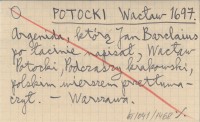 POTOCKI Wacław 1697.
Argenida, którą Jan Barclaius
po łacinie napisał, Wacław
Potocki, Podczaszy krakowski,
polskim wierszem przetłuma-
czył. – Warszawa.